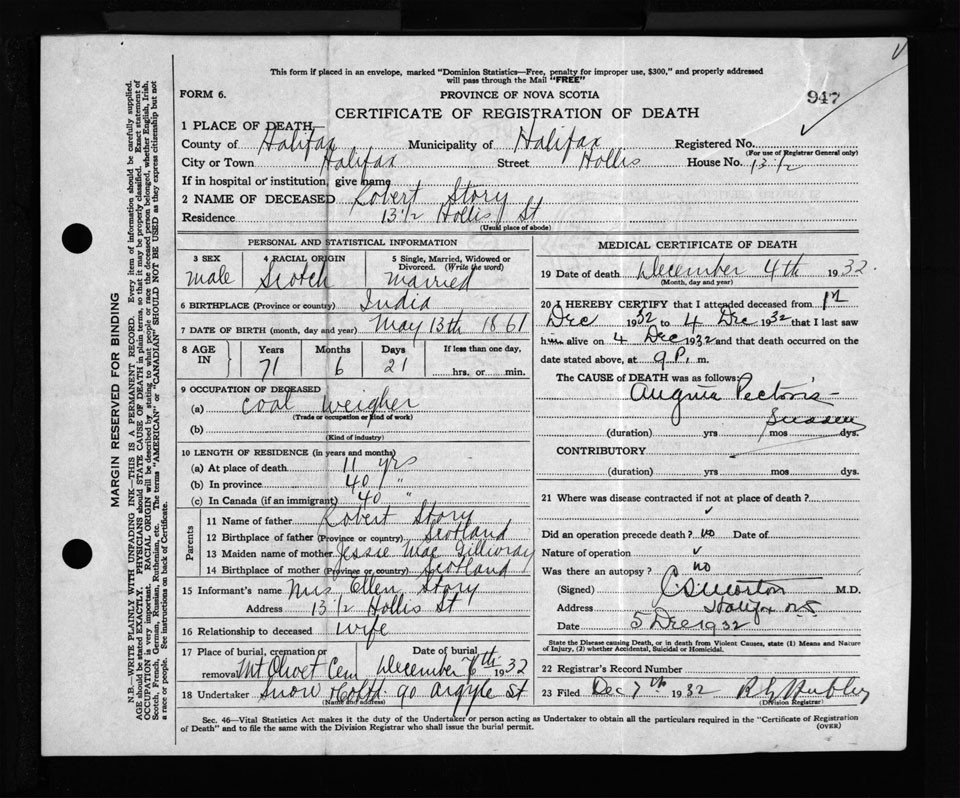 This form if placed in an envelope, marked "Dominion Statistics—Free, penalty for improper use, $300," and properly addressed
will pass through the Mail "FREE"
FORM 6.
PROVINCE OF NOVA SCOTIA
947
CERTIFICATE OF REGISTRATION OF DEATH
1 PLACE OF DEATH
County of Halifax Municipality of Halifax Registered No.
(For use of Registrar General only)
City or Town Halifax Street Hollis House No. 13 1/2
If in hospital or institution, give name
2 NAME OF DECEASED Robert Story
Residence 13 1/2 Hollis St
(Usual place of abode)
PERSONAL AND STATISTICAL INFORMATION
3 SEX 4 RACIAL ORIGIN 5 Single, Married, Widowed or
Divorced. (Write the word)
male Scotch Married
6 BIRTHPLACE (Province or country) India
7 DATE OF BIRTH (month, day and year) May 13th 1861
8 AGE IN Years Months Days If less than one day,
71 6 21 hrs. or min.
9 OCCUPATION OF DECEASED
(a) Coal weigher
(Trade or occupation or kind of work)
(b)
(Kind of industry)
10 LENGTH OF RESIDENCE (in years and months)
(a) At place of death 11 yrs
(b) In province 40 "
(c) In Canada (if an immigrant) 40 "
Parents
11 Name of father Robert Story
12 Birthplace of father (Province or country) Scotland
13 Maiden name of mother Jessie Mac Gillivray
14 Birthplace of mother (Province or country) Scotland
15 Informant's name Mrs Ellen Story
Address 13 1/2 Hollis St
16 Relationship to deceased wife
17 Place of burial, cremation or removal Date of burial
Mt Olivet Cem December 7th 1932
18 Undertaker Snow & Co Ltd. 90 Argyle St
(Name and address)
MEDICAL CERTIFICATE OF DEATH
19 Date of death December 4th 1932.
(Month, day and year)
20 I HEREBY CERTIFY that I attended deceased from 1st
Dec 1932 to 4 Dec 1932 that I last saw
him alive on 4 Dec 1932 and that death occurred on the
date stated above, at 9 P. m.
The CAUSE of DEATH was as follows:
Angina Pectoris
Sudden
(duration) yrs mos dys.
CONTRIBUTORY
(duration) yrs mos dys.
21 Where was disease contracted if not at place of death?
Did an operation precede death? no Date of
Nature of operation
Was there an autopsy? no
(Signed) M.D.
Address Halifax N.S
Date 5 Dec 1932
State the Disease causing Death, or in death from Violent Causes, state (1) Means and Nature
of Injury, (2) whether Accidental, Suicidal or Homicidal.
22 Registrar's Record Number
23 Filed Dec 7th 1932
(Division Registrar)
Sec. 46—Vital Statistics Act makes it the duty of the Undertaker or person acting as Undertaker to obtain all the particulars required in the "Certificate of Registration
of Death" and to file the same with the Division Registrar who shall issue the burial permit. (OVER)
MARGIN RESERVED FOR BINDING
N.B.—WRITE PLAINLY WITH UNFADING INK—THIS IS A PERMANENT RECORD. Every item of information should be carefully supplied.
AGE should be stated EXACTLY. PHYSICIANS should STATE CAUSE OF DEATH in plain terms, so that it may be properly classified. Exact statement of
OCCUPATION is very important. RACIAL ORIGIN will be described by stating to what people or race the deceased person belonged, whether English, Irish,
Scotch, French, German, Russian, Ruthenian, etc. The terms "AMERICAN" or "CANADIAN" SHOULD NOT BE USED as they express citizenship but not
a race or people. See instructions on back of Certificate.